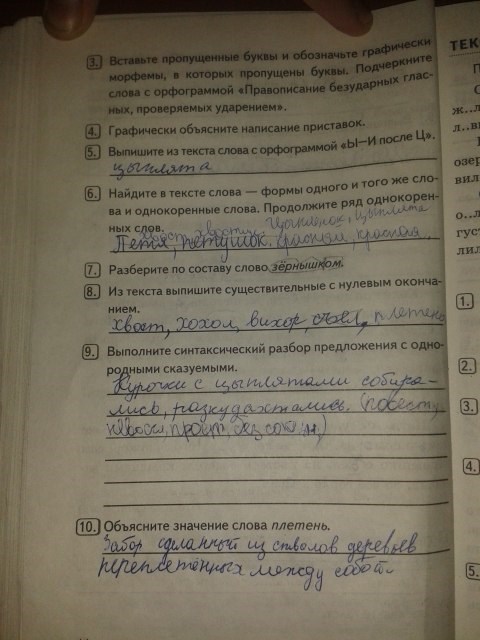 3. Вставьте пропущенные буквы и обозначьте графически
морфемы, в которых пропущены буквы. Подчеркните
слова с орфограммой «Правописание безударных глас-
ных, проверяемых ударением».
4. Графически объясните написание приставок.
5. Выпишите из текста слова с орфограммой «Ы—И после Ц».
цыплята
6. Найдите в тексте слова — формы одного и того же сло-
ва и однокоренные слова. Продолжите ряд однокорен-
ных слов. цыпленок, цыплята
Петя, петушок, красный, красная
7. Разберите по составу слово зёрнышком.
8. Из текста выпишите существительные с нулевым оконча-
нием.
хвост, хохол, вихор, плетень
9. Выполните синтаксический разбор предложения с одно-
родными сказуемыми.
Курочки с цыплятами собира-
лись, раскудахтались. (повеств
10. Объясните значение слова плетень.
Забор сделанный из стволов деревьев
переплетённых между собой.
ТЕК
П
С
ж..л
л..в
озер
вил
о..л
гус
лил
1.
2.
3.
4.
5.